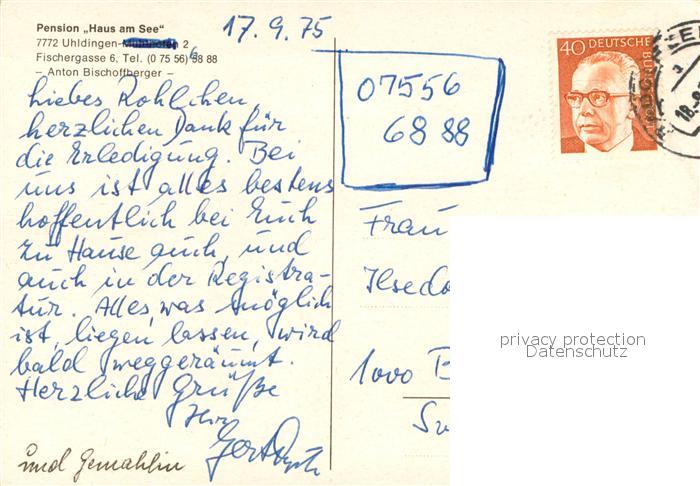 17. 9. 75
Pension „Haus am See"
7772 Uhldingen-Mühlhofen 2
Fischergasse 6, Tel. (0 75 56) 68 88
– Anton Bischoffberger –
liebes Rohlchen,
herzlichen Dank für
die Erledigung. Bei
uns ist alles bestens
hoffentlich bei Euch
zu Hause auch, und
auch in der Registra-
tur. Alles, was möglich
ist, liegen lassen, wird
bald weggeräumt.
Herzliche Grüße
Ihr
Gert
und Gemahlin
07556
68 88
40 DEUTSCHE
BUNDESPOST
Frau
Ilsedo
1000 B
privacy protection
Datenschutz